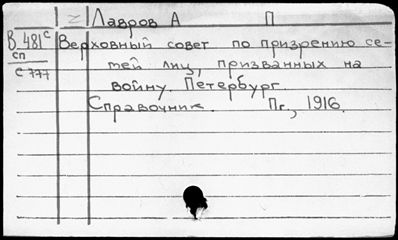 Лавров А П
В 481с Верховный совет по призрению се-
сп
с 777 мей лиц, призванных на
войну. Петербург.
Справочник. Пг., 1916.